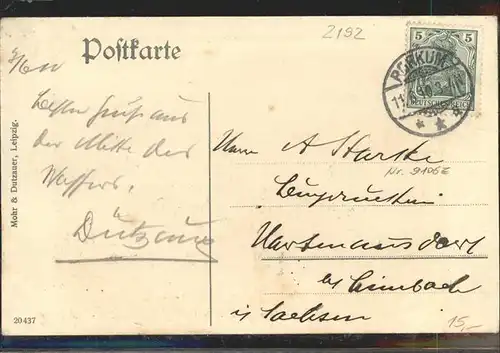 2192
Postkarte
5 5
BORKUM
DEUTSCHES REICH
Besten Gruß aus
der Mitte des
Wassers.
Dutzauer
Mohr & Dutzauer, Leipzig.
20437
Herrn A Starke
Nr. 9106E
Hartmannsdorf
bei Limbach
in Sachsen
15,-